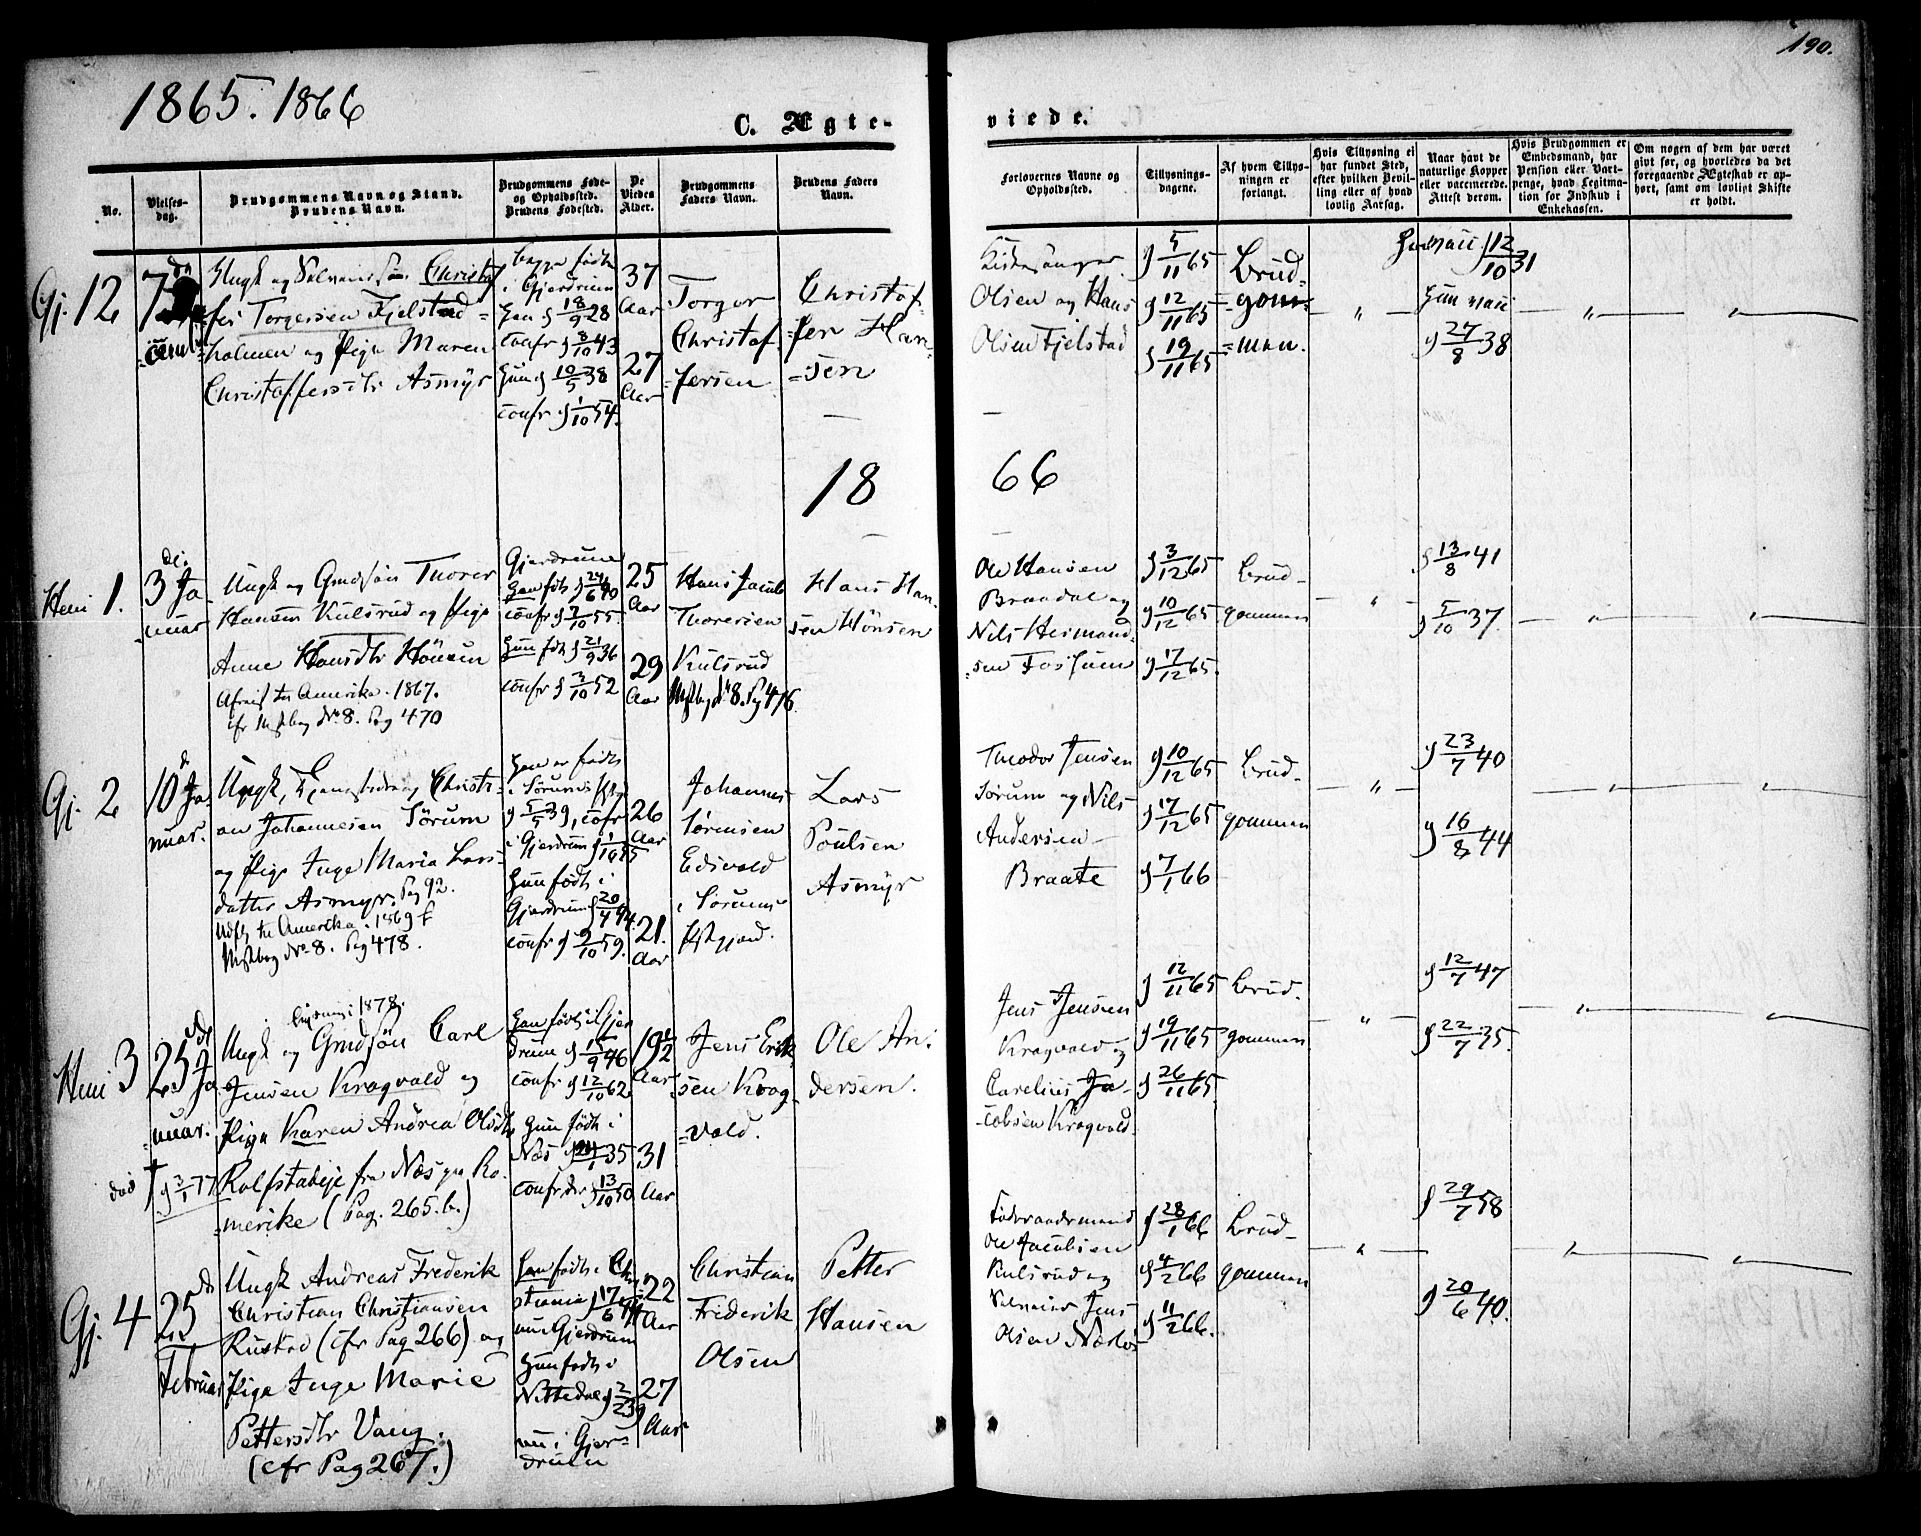 190.
1865. 1866
C. Ægte-
viede.
No.
Vielses-
dag.
Brudgommens Navn og Stand.
Brudens Navn.
Brudgommens Føde-
og Opholdssted.
Brudens Fødested.
De
Viedes
Alder.
Brudgommens
Faders Navn.
Brudens Faders
Navn.
Forlovernes Navne og
Opholdssted.
Tillysnings-
dagene.
Af hvem Tillys-
ningen er
forlangt.
Hvis Tillysning ei
har fundet Sted,
efter hvilken Bevil-
ling eller af hvad
lovlig Aarsag.
Naar havt de
naturlige Kopper
eller vaccinerede.
Attest derom.
Hvis Brudgommen er
Embedsmand, har
Pension eller Vart-
penge, hvad Legitima-
tion for Indskud i
Enkekassen.
Om nogen af dem har været
givt før, og hvorledes da det
foregaaende Ægteskab er op-
hørt, samt om lovligt Skifte
er holdt.
Gj. 12
Ungk og Selveiersøn Christof
fer Torgersen Fjelstad-
holmen og Pige Maren
Christoffersdtr Asmyr
begge født
i Gjerdrum
Han f 18/9 28
confr f 8/10 43
Hun f 10/5 38
confr f 1/10 54.
37
Aar
27
Aar
Torger
Christof-
fersen
Christof-
fer Han-
sen
Kirkesanger
Olsen og Hans
Olsen Fjelstad
g 5/11 65
g 12/11 65
g 19/11 65
Brud-
gom-
men.
12/10 31
g 27/8 38
18
66
Hemi 1.
3 Ja
nuar
Ungk og Gmdsøn Thorer
Hansen Kulsrud og Pige
Anne Hansdtr Hönsen
Afreist til Amerika. 1867.
cfr Mstbog No. 8. Pag 470
Gjerdrum
Han føds g 24/6 40
confr g 7/10 55.
Hun føds g 21/9 36
confr g 3/10 52
25
Aar
29
Aar
Hans Jacob
Thorersen
Kulsrud
Hans Han-
sen Hönsen
Ole Hansen
Braadal og
Nils Hermand-
sen Fossum
g 3/12 65
g 10/12 65
g 17/12 65.
Brud-
gommen
g 13/8 41
g 5/10 37.
Gj. 2
10 Ja
nuar.
Ungk, Christi-
an Johannesen Sörum
og Pige Inge Maria Lars-
datter Asmyr. Pag 92.
Udfl til Amerika. 1869 f
Mstbog No. 8. Pag 478.
Han er føds
i Sørums
g 5/5 39, cofr
i Gjerdrum
Hun føds i
Gjerdrum g 20/4 44.
confr g 9/10 59.
26
Aar
21.
Aar
Johannes
Sørensen
Edsvold
i Sørums
Lars
Poulsen
Asmyr
Theodor Jensen
Sörum og Nils
Andersen
Braate
g 10/12 65
g 17/12 65
g 7/1 66
Brud-
gommen
g 23/7 40
g 16/8 44
Hemi 3
25 Ja
nuar.
død † g 3/1 77
Ungk og Gmdsøn Carl
Jensen Kragvold og
Pige Karen Andrea Olsdtr
Rolfstadeje fra Næs paa Ro-
merike (Pag. 265.b.)
Han føds i Gjer
drum
confr g 12/10 62
Hun føds i
Næs
confr der g 13/10 50
19 1/2
Aar
31
Aar
Jens Erik-
sen Krog-
vold.
Ole An-
dersen.
Jens Jensen
Kragvold og
Carelius Ja-
cobsen Kragvold.
g 12/11 65
g 19/11 65
g 26/11 65
Brud-
gommen
g 12/7 47
g 22/7 35.
Gj. 4
25
Februar
Ungk Andreas Frederik
Christian Christiansen
Rustad (cfr Pag 266) og
Pige Inge Marie
Pettersdtr Vang.
(cfr Pag 267.)
Han føds i Chri-
stiania
nu Gjerdrum
Hun føds i
Nittedal g 2/2 39
nu i Gjer-
drum
22
Aar
27
Aar
Christian
Frederik
Olsen
Petter
Hansen
Ole Jacobsen
Kulsrud og
Selveier Jens
Olsen
g 28/1 66
g 4/2 66
g 11/2 66.
Brud-
gommen
g 29/7 58
g 20/6 40.